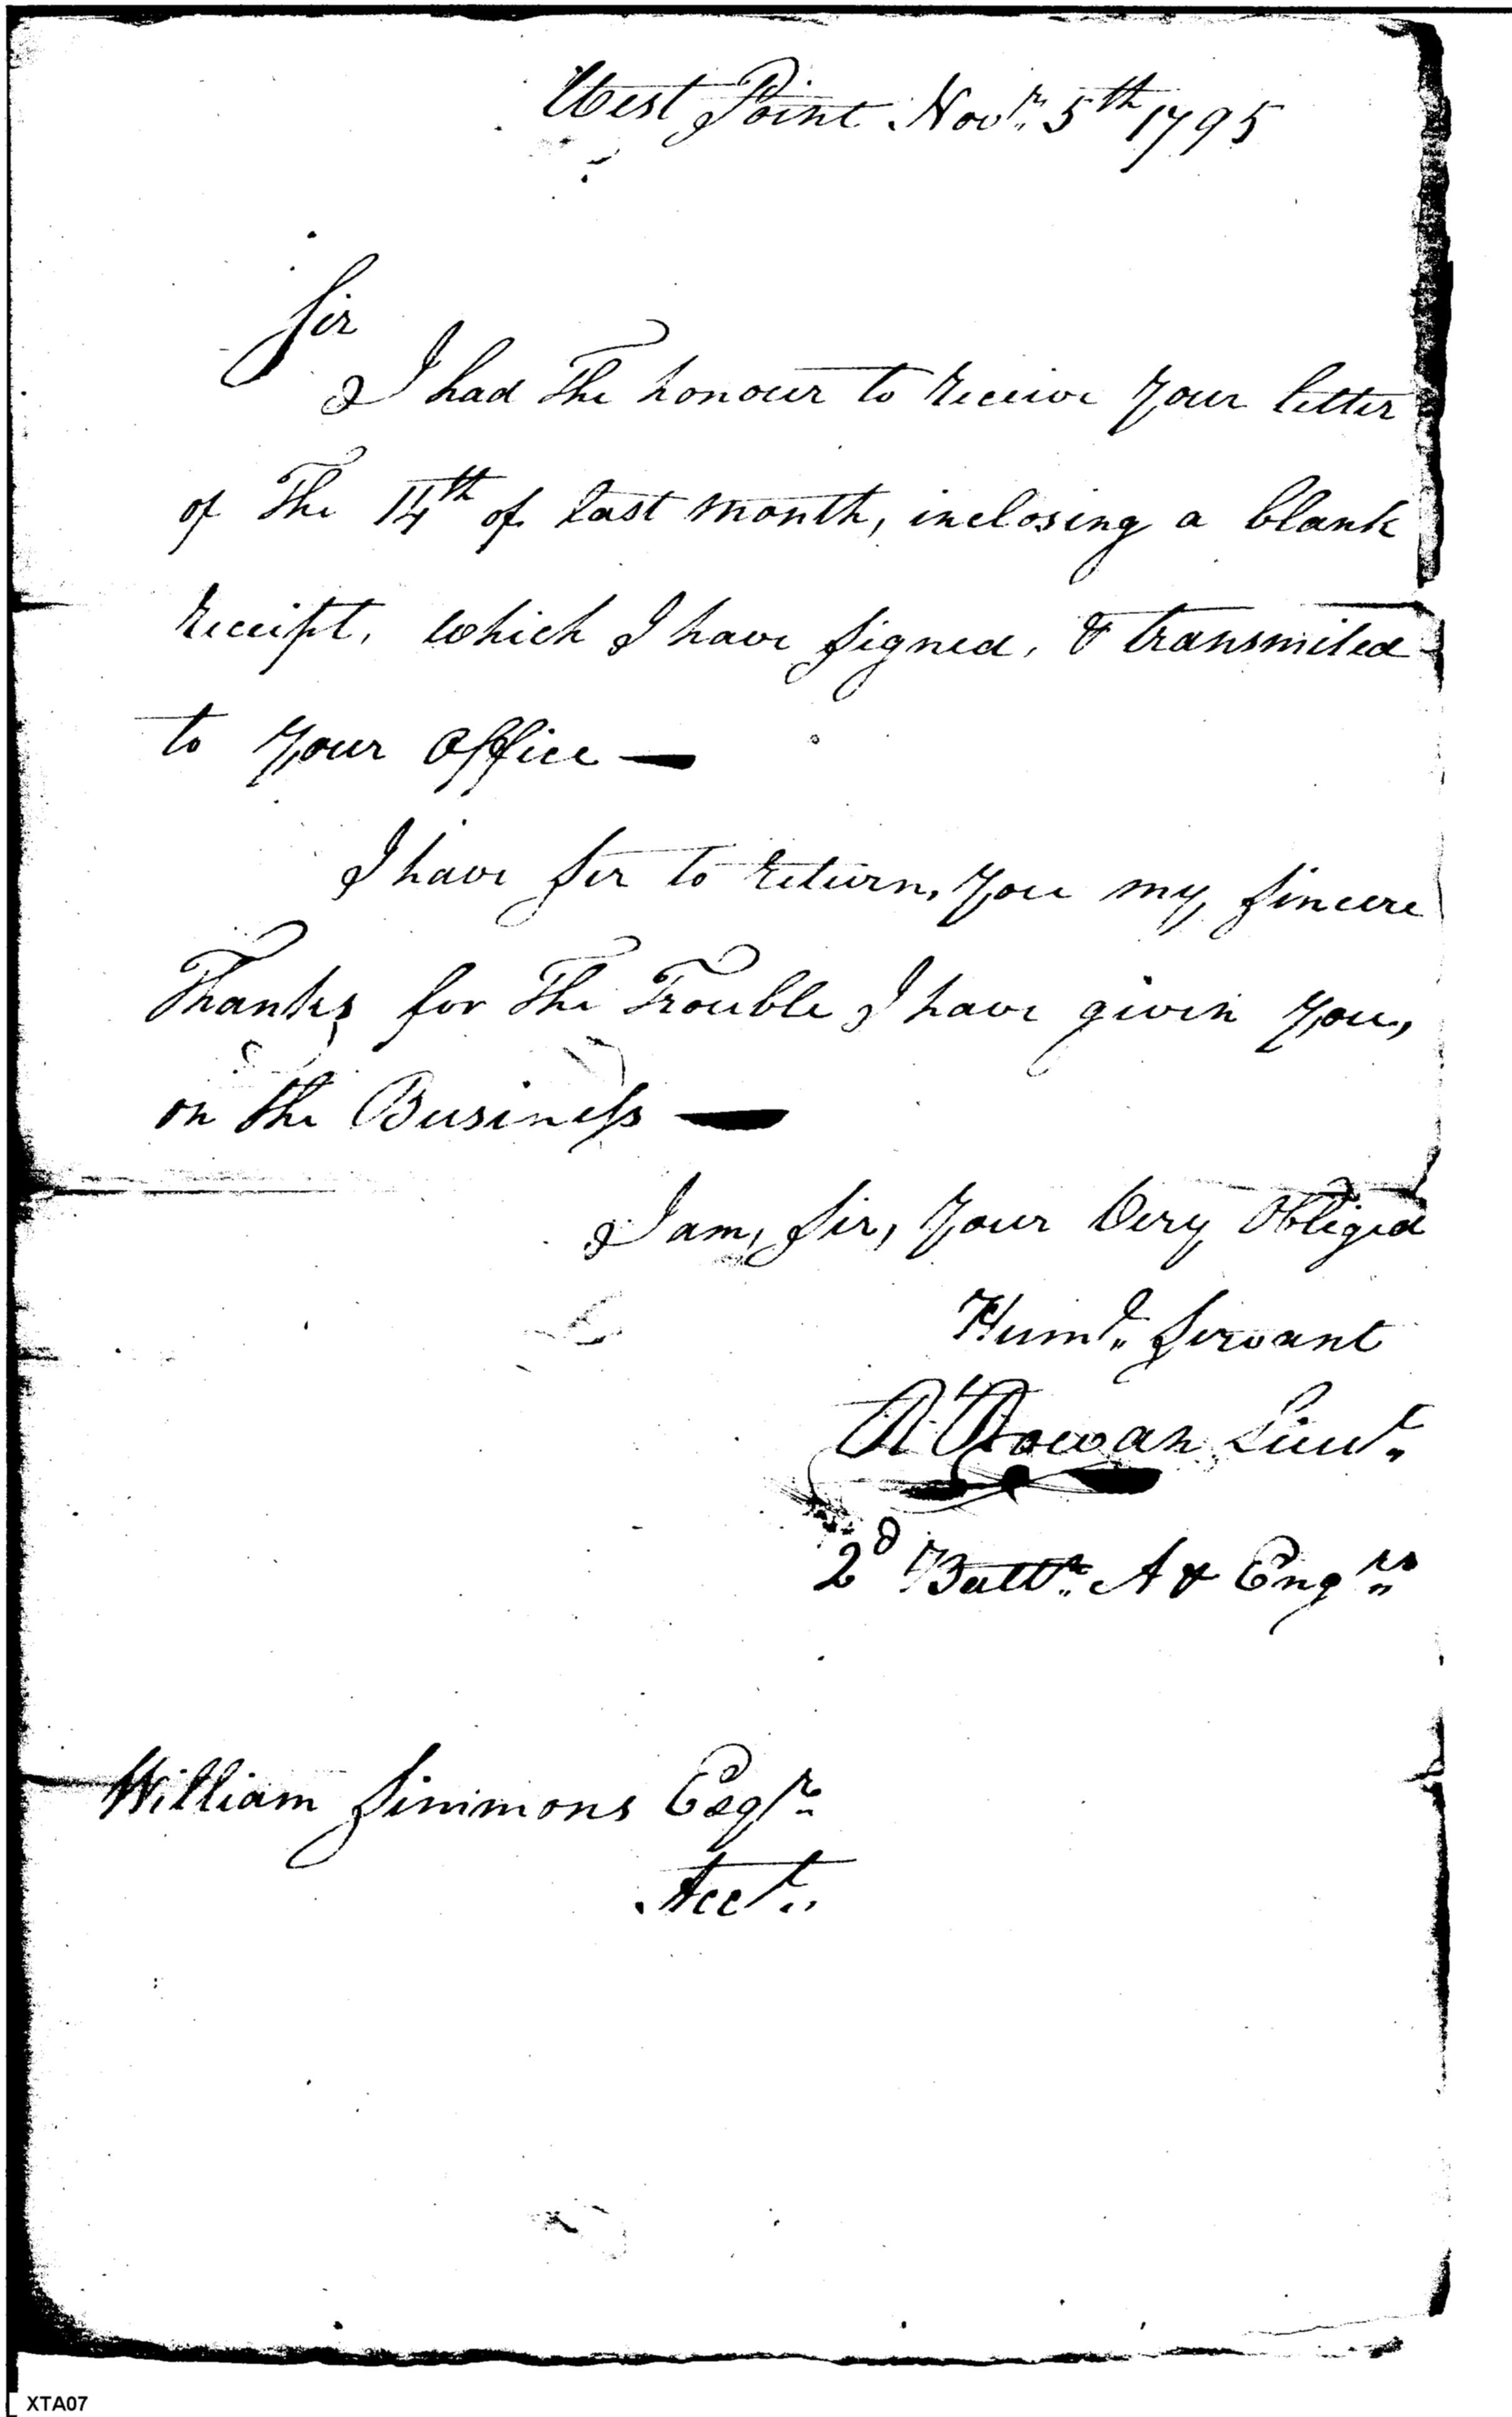 West Point Novr. 5th 1795
Sir
I had The honour to receive Your letter
of The 14th of last month, inclosing a blank
receipt, which I have signed, & transmited
to Your Office —
I have Sir to return, You my sincere
Thanks for The Trouble I have given You,
on the Business —
I am, Sir, Your Very Obliged
Humle. Servant
R Rowan Lieut.
2d Battn. A & Engrs.
William Simmons Esqr.
Acct.
XTA07